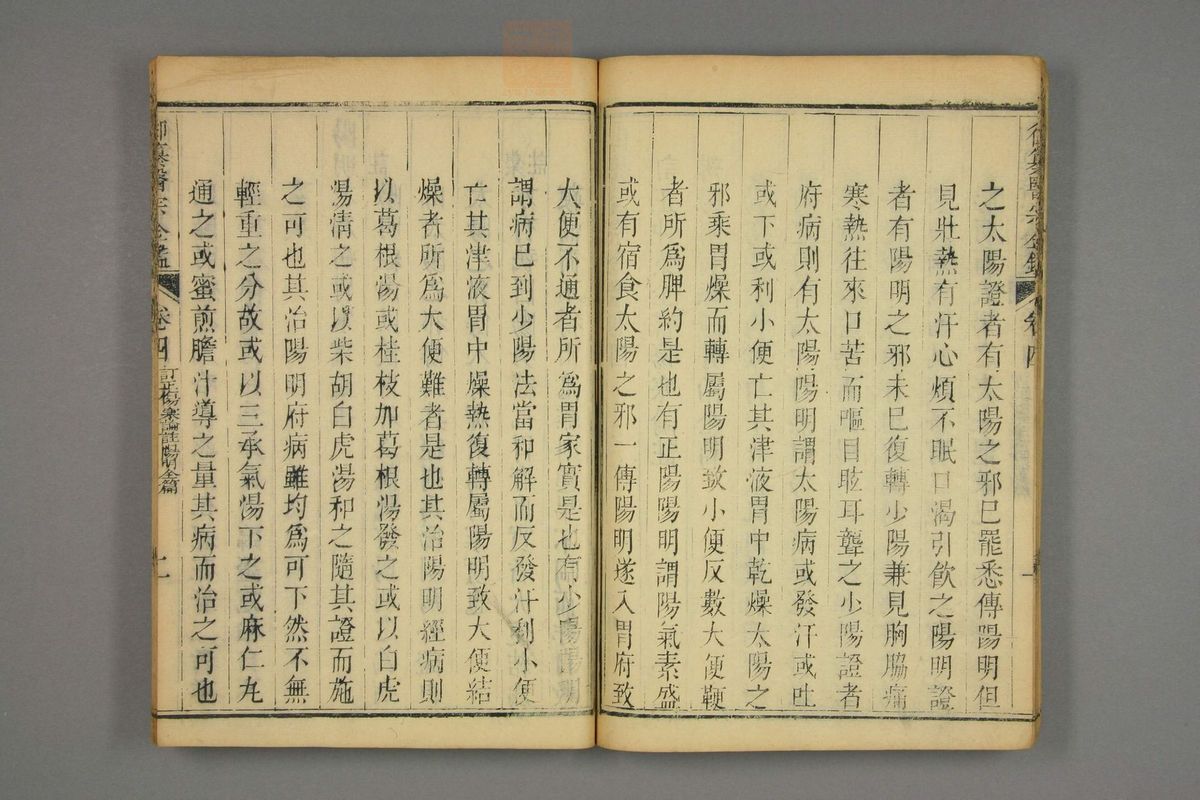 之太陽證者有太陽之邪已罷悉傳陽明但
見壯熱有汗心煩不眠口渴引飲之陽明證
者有陽明之邪未已復轉少陽兼見胸脇痛
寒熱往來口苦而嘔目眩耳聾之少陽證者
府病則有太陽陽明謂太陽病或發汗或吐
或下或利小便亡其津液胃中乾燥太陽之
邪乘胃燥而轉屬陽明致小便反數大便鞕
者所爲脾約是也有正陽陽明謂陽氣素盛
或有宿食太陽之邪一傳陽明遂入胃府致
大便不通者所爲胃家實是也有少陽陽明
謂病已到少陽法當和解而反發汗利小便
亡其津液胃中燥熱復轉屬陽明致大便結
燥者所爲大便難者是也其治陽明經病則
以葛根湯或桂枝加葛根湯發之或以白虎
湯清之或以柴胡白虎湯和之隨其證而施
之可也其治陽明府病雖均爲可下然不無
輕重之分故或以三承氣湯下之或麻仁丸
通之或蜜煎膽汁導之量其病而治之可也
御纂醫宗金鑑
卷四
訂正傷寒論註陽明全篇